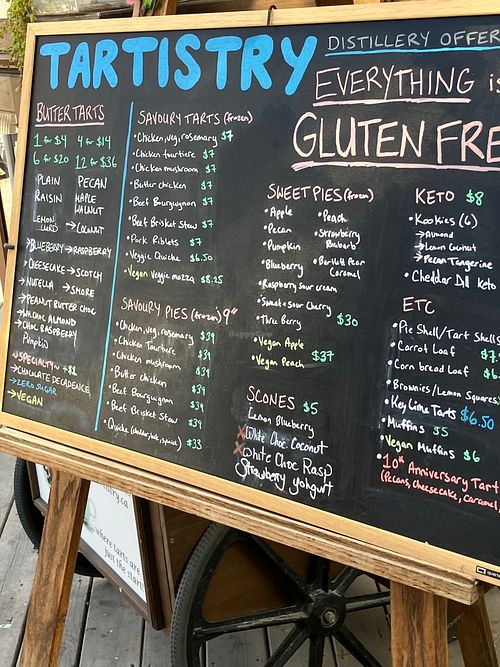 TARTISTRY
DISTILLERY OFFER
EVERYTHING is
GLUTEN FRE
BUTTER TARTS
1 for $4 4 for $14
6 for $20 12 for $36
PLAIN PECAN
RAISIN MAPLE WALNUT
LEMON CURD → COCONUT
→ BLUEBERRY → RASPBERRY
→ CHEESECAKE → SCOTCH
→ NUTELLA → SMORE
→ PEANUT BUTTER CHOC
→ WH. CHOC ALMOND
→ CHOC RASPBERRY
Pumpkin
~ SPECIALTY ~ +$1
→ CHOCOLATE DECADENCE
→ ZERO SUGAR
→ VEGAN
SAVOURY TARTS (frozen)
• Chicken, veg, rosemary $7
• Chicken tourtiere $7
• Chicken mushroom $7
• Butter chicken $7
• Beef Bourguignon $7
• Beef Brisket Stew $7
• Pork Riblets $7
• Veggie Quiche $6.50
• Vegan Veggie mozza $8.25
SAVOURY PIES (frozen) 9"
• Chicken, veg, rosemary $39
• Chicken Tourtiere $39
• Chicken mushroom $39
• Butter chicken $39
• Beef Bourguignon $39
• Beef Brisket Stew $39
• Quiche (cheddar, kale, spinach) $33
SWEET PIES (frozen)
• Apple • Peach
• Pecan • Strawberry Rhubarb
• Pumpkin
• Blueberry • Bartlett Pear Caramel
• Raspberry Sour cream
• Sweet + Sour Cherry
• Three Berry $30
• Vegan Apple
• Vegan Peach $37
SCONES $5
Lemon Blueberry
x White Choc Coconut
x White Choc Rasp
Strawberry yohgurt
KETO $8
• Kookies (6)
→ Almond
→ Lemon Coconut
→ Pecan Tangerine
• Cheddar Dill keto
ETC
• Pie Shell/Tart Shells
• Carrot Loaf $7.
• Corn bread Loaf $6.
• Brownies/Lemon Squares
• Key Lime Tarts $6.50
• Muffins $5
• Vegan Muffins $6
• 10th Anniversary Tart
(Pecans, cheesecake, caramel,
stry.ca
where tarts are
just the start!
HappyCow